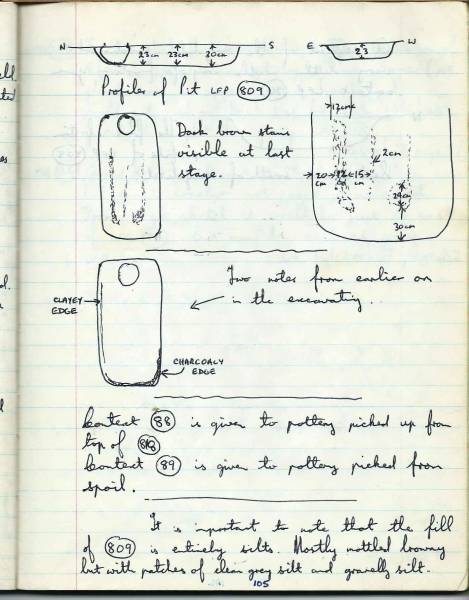 N S E W
23cm 23cm 20cm 23
Profiles of Pit LFP 809
17cm
Dark brown stains
visible at last
stage.
2cm
20 cm 12 15 cm
29cm
30cm
Two notes from earlier on
in the excavating.
CLAYEY
EDGE
CHARCOALY
EDGE
Context 88 is given to pottery picked up from
top of
Context 89 is given to pottery picked from
spoil.
It is important to note that the fill
of 809 is entirely silts. Mostly mottled browny
but with patches of clean grey silt and gravelly silt.
105